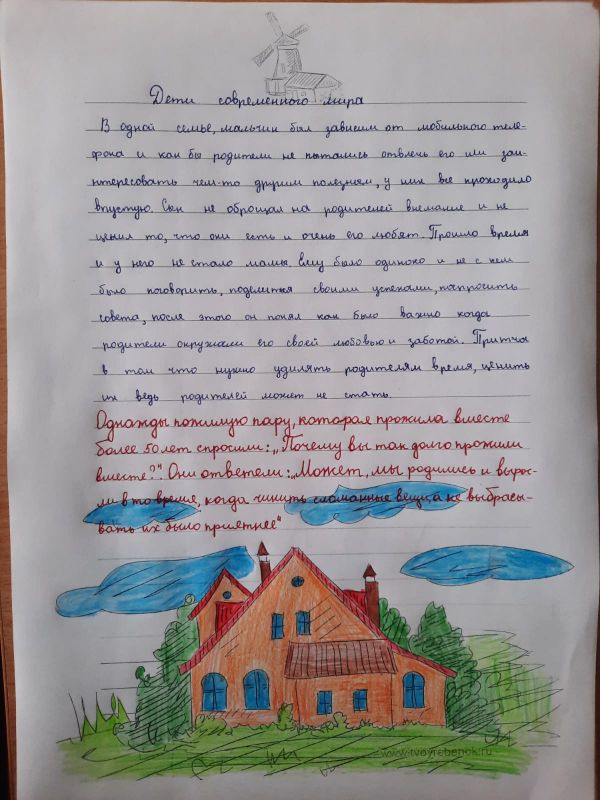 Дети современного мира
В одной семье, мальчик был зависим от мобильного теле-
фона и как бы родители не пытались отвлечь его или заи-
нтересовать чем-то другим полезным, у них все проходило
впустую. Сын не обращал на родителей внимание и не
ценил то, что они есть и очень его любят. Прошло время
и у него не стало мамы. Ему было одиноко и не с кем
было поговорить, поделиться своими успехами, попросить
совета, после этого он понял как было важно когда
родители окружали его своей любовью и заботой. Притча
в том что нужно уделять родителям время, ценить
их ведь родителей может не стать.
Однажды пожилую пару, которая прожила вместе
более 50 лет спросили: „Почему вы так долго прожили
вместе?". Они ответели: „Может, мы родились и вырос-
ли в то время, когда чинить сломанные вещи, а не выбрасы-
вать их было приятнее"
www.tvoyrebenok.ru